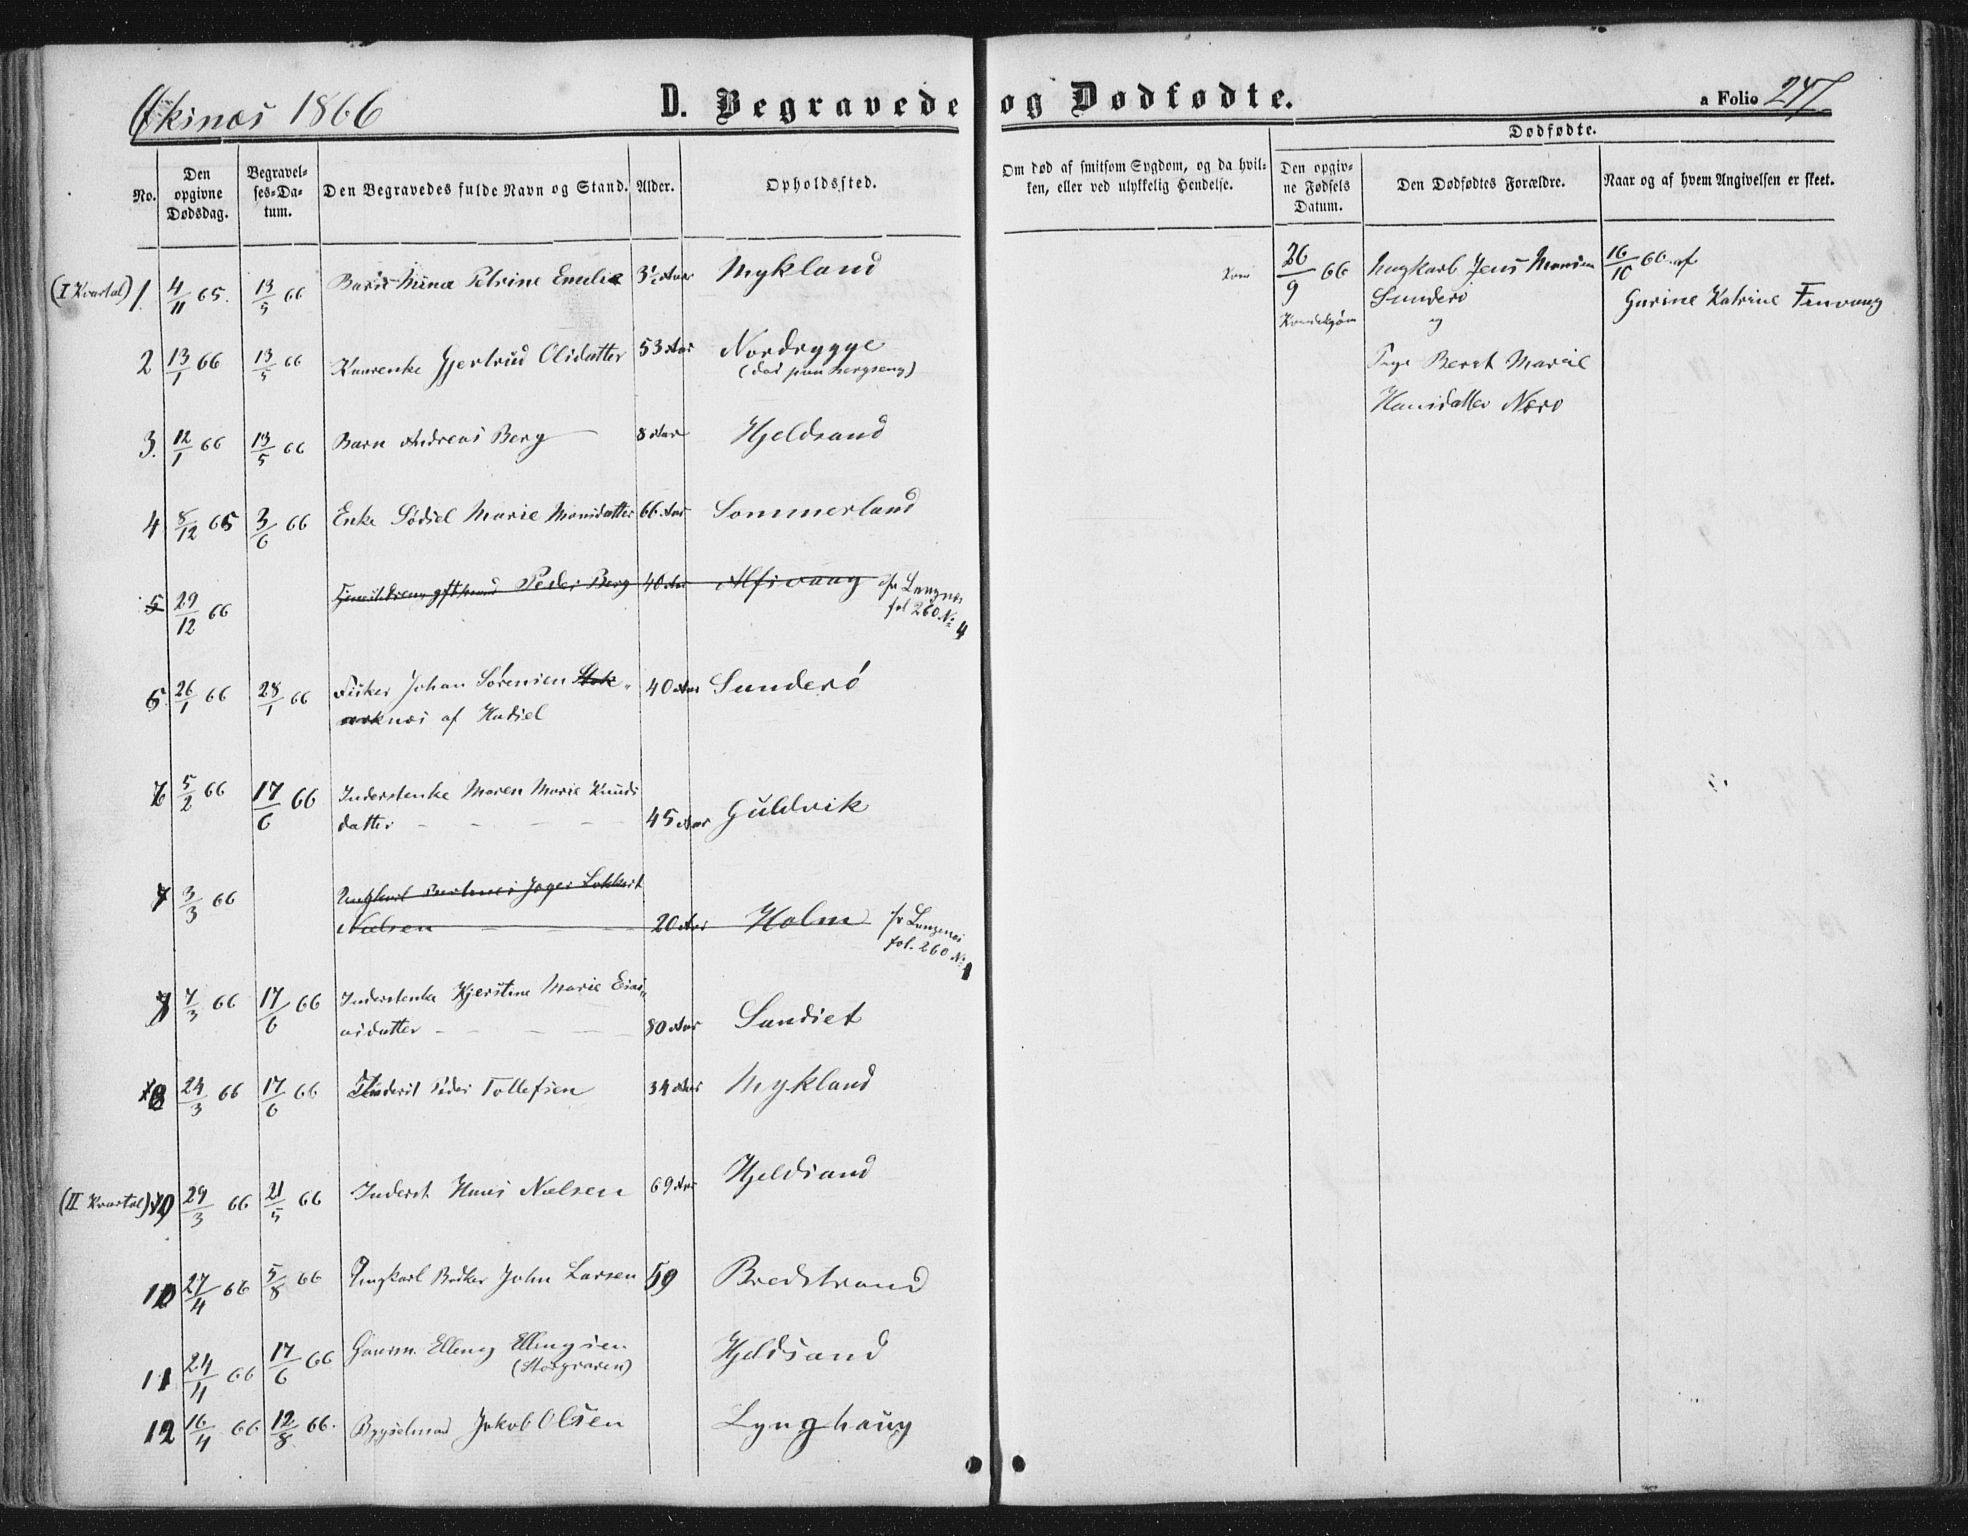 Øksnes 1866 D. Begravede og Dødfødte. a Folio 247
No. Den opgivne Dødsdag. Begravelses-Datum. Den Begravedes fulde Navn og Stand. Alder. Opholdssted. Om død af smitsom Sygdom, og da hvilken, eller ved ulykkelig Hendelse. Dødfødte. Den opgivne Fødsels Datum. Den Dødfødtes Forældre. Naar og af hvem Angivelsen er skeet.
(I Kvartal) 1. 4/11 65. 13/5 66 Barn Mina Petrine Emelie 3½ Aar Mykland
26/9 66 Kvindekjøn Ungkarl Jens Monsen 16/10 66 af
Sunderø Gurine Katrine Finvaag
og
Pige Beret Marie
Hansdatter Nærø
2 13/1 66 13/5 66 Gjertrud Olsdatter 53 Aar Nordrygge
3. 12/1 66 13/5 66 Barn Andreas Berg 8 Aar Hjeldsand
4 8/12 65 3/6 66 Enke Sødsel Marie Monsdatter 66 Aar Sommerland
5 29/12 66 Peder Berg 40 Aar Alfsvaag fr Langnes
fol 260 No 4
5. 26/1 66 28/1 66 Fisker Johan Sørensen Stok-
marknes af Hadsel 40 Aar Sunderø
6 5/2 66 17/6 66 Inderstenke Maren Marie Knuds
datter 45 Aar Guldvik
7 3/3 66 Ungkarl Jager Lokkert
Nielsen 20 Aar Holm fr Langenes
fol. 260 No 1
7 7/3 66 17/6 66 Inderstenke Kjerstine Marie Esai-
asdatter 80 Aar Sandset
8 24/3 66 17/6 66 Inderst Peder Tollefsen 34 Aar Mykland
(II Kvartal) 9 29/3 66 21/5 66 Inderst Hans Nielsen 69 Aar Hjeldsand
10 27/4 66 5/8 66 Ungkarl Bødker John Larsen 59 Bredstrand
11 24/4 66 17/6 66 Gaarm. Elling Ellingsen
Hjeldsand
12 16/4 66 12/8 66. Bygselmand Jakob Olsen Lynghaug